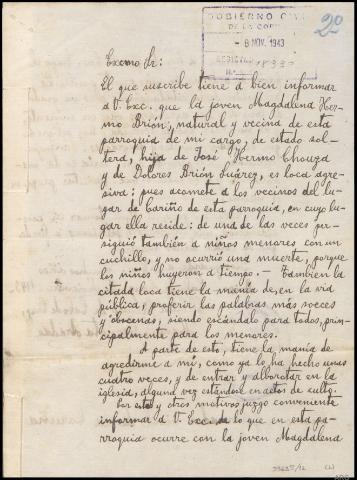 GOBIERNO CIVIL
DE LA CORUÑA
- 8 NOV. 1943
18330
2º
Excmo Sr:
El que suscribe tiene a bien informar
a V. Exc. que la joven Magdalena Her-
mo Brión, natural y vecina de esta
parroquia de mi cargo, de estado sol-
tera, hija de José Hermo Chouza
y de Dolores Brión Suárez, es loca agre-
siva: pues acomete a los vecinos del lu-
gar de Cariño de esta parroquia, en cuyo lu-
gar ella reside: de una de las veces per-
siguió también a niños menores con un
cuchillo, y no ocurrió una muerte, porque
los niños huyeron a tiempo. – También la
citada loca tiene la manía de, en la vía
pública, proferir las palabras más soeces
y obscenas, siendo escándalo para todos, prin-
cipalmente para los menores.
A parte de esto, tiene la manía de
agredirme a mí, como ya lo ha hecho unas
cuatro veces, y de entrar y alborotar en la
iglesia, alguna vez estándose en actos de culto.
Por estos y otros motivos juzgo conveniente
informar a V. Exc. de lo que en esta pa-
rroquia ocurre con la joven Magdalena